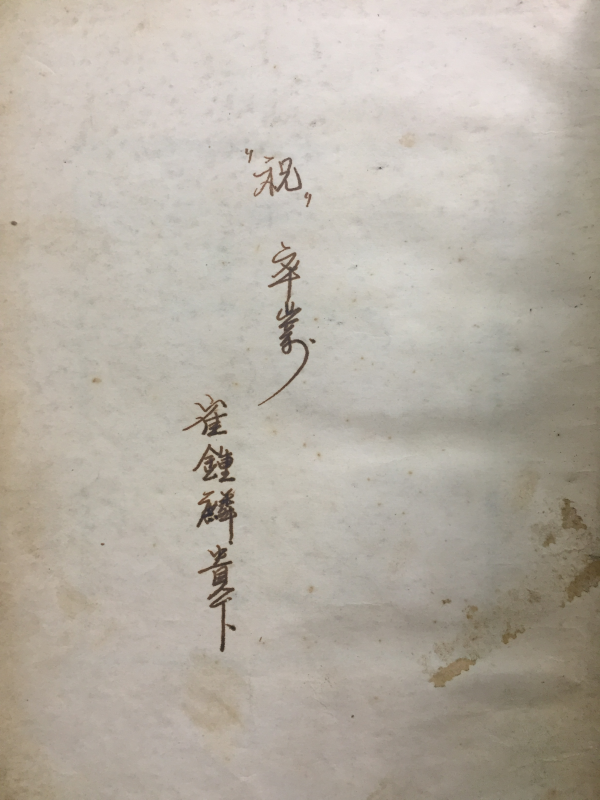 "祝"
卒業
崔鍾麟貴下